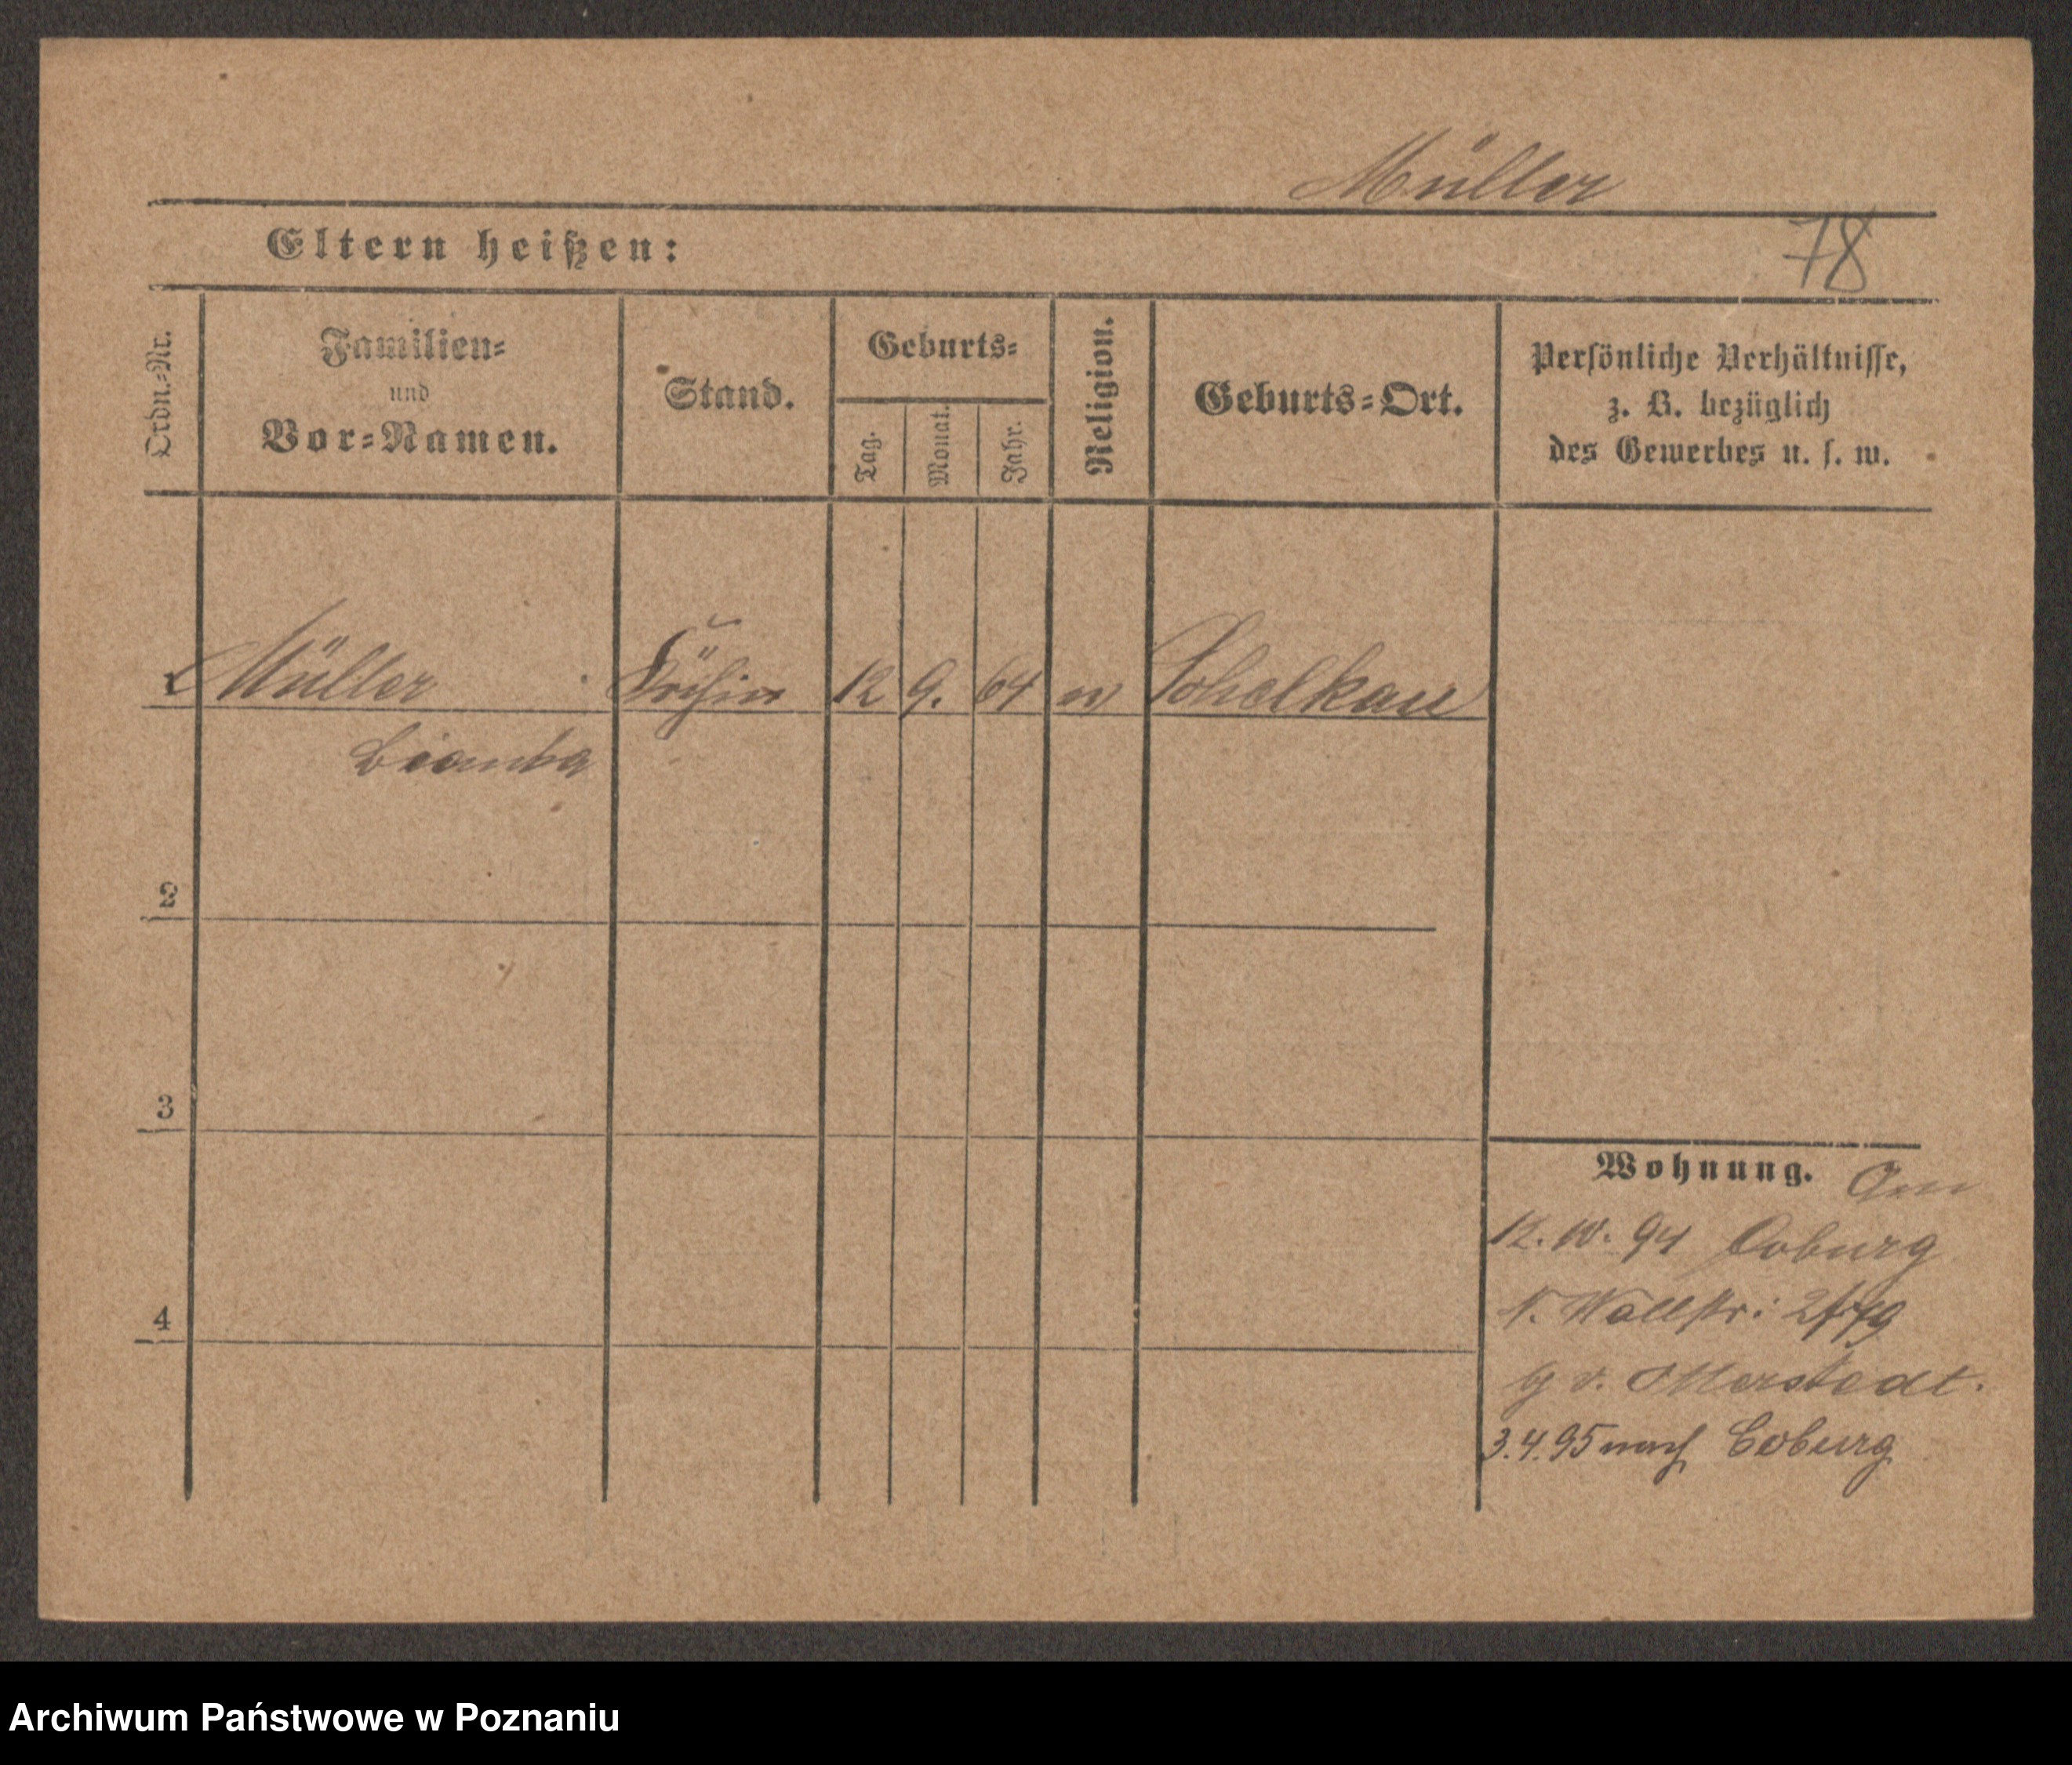 Müller
Eltern heißen:
78
Ordn.-Nr.
Familien-
und
Vor-Namen.
Stand.
Geburts-
Tag.
Monat.
Jahr.
Religion.
Geburts-Ort.
Persönliche Verhältnisse,
z. B. bezüglich
des Gewerbes u. s. w.
Müller
Köchin
12
9.
64
Schalkau
2
3
4
Wohnung.
12. 10. 94 Coburg
Wallstr:
v.
3.4.95 nach Coburg
Archiwum Państwowe w Poznaniu